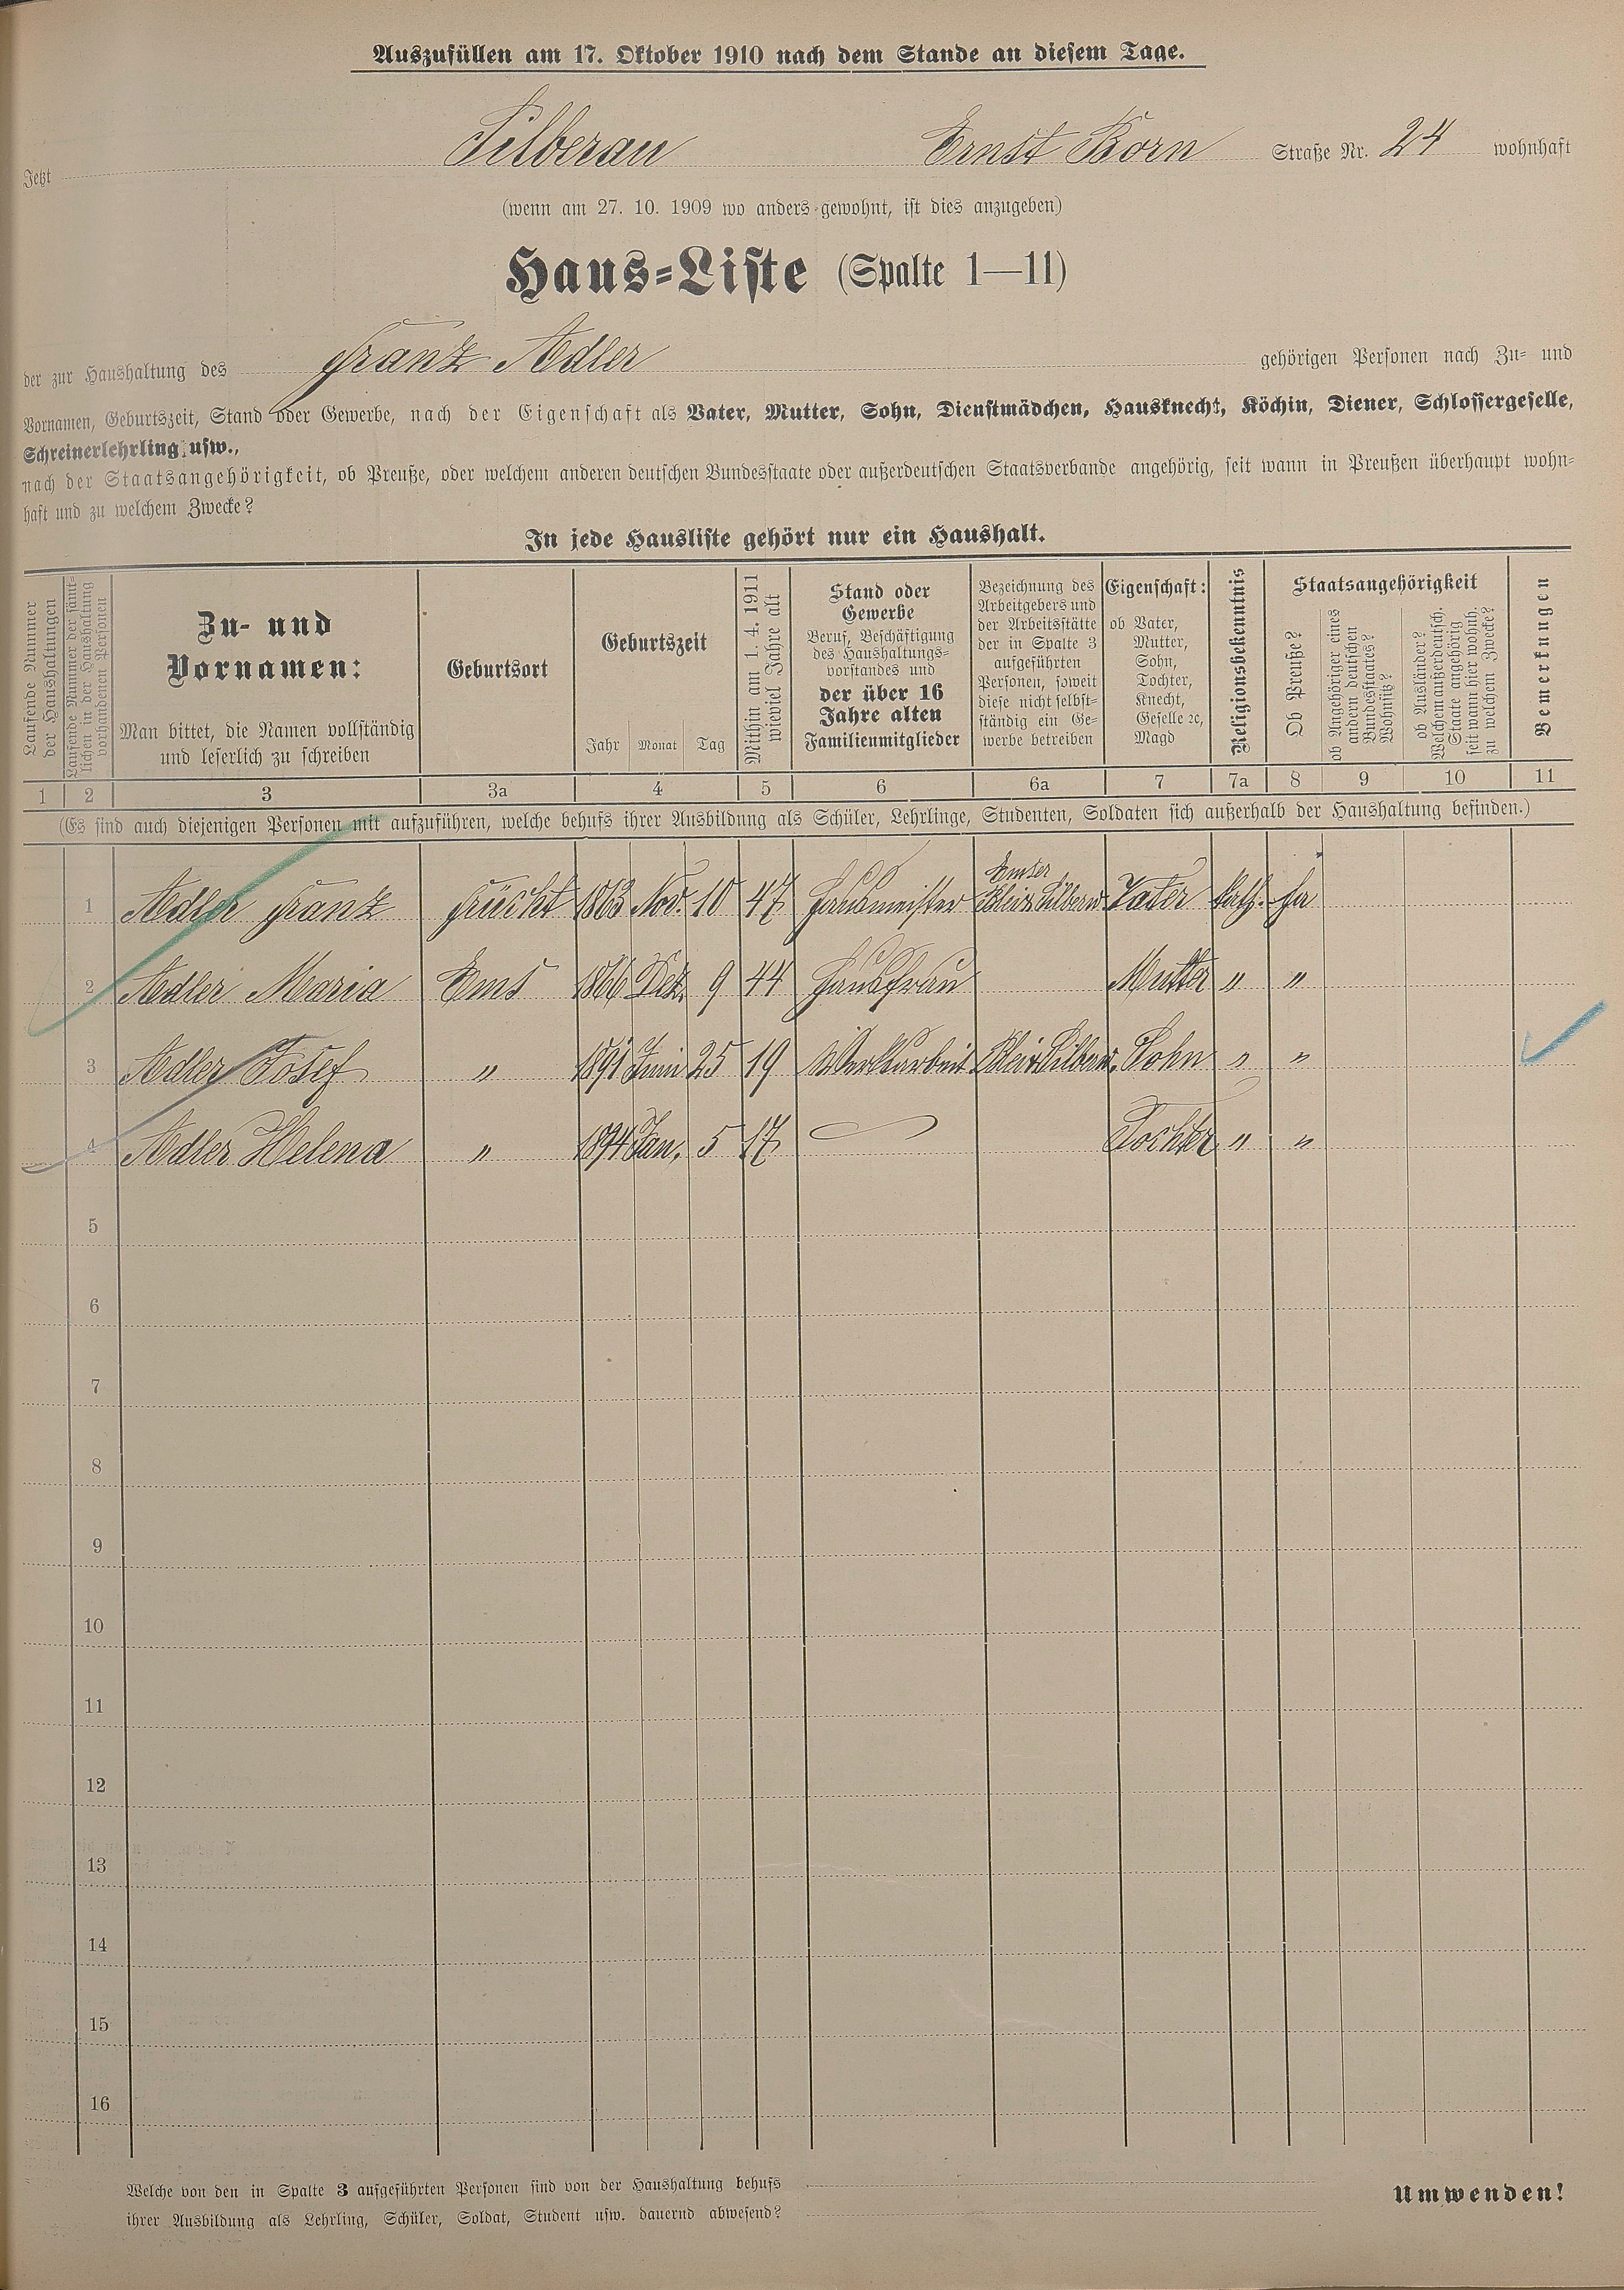 Auszufüllen am 17. Oktober 1910 nach dem Stande an diesem Tage.
Jetzt Silberau Ernst Born Straße Nr. 24 wohnhaft
(wenn am 27. 10. 1909 wo anders gewohnt, ist dies anzugeben)
Haus-Liste (Spalte 1—11)
der zur Haushaltung des Franz Adler gehörigen Personen nach Zu- und
Vornamen, Geburtszeit, Stand oder Gewerbe, nach der Eigenschaft als Vater, Mutter, Sohn, Dienstmädchen, Hausknecht, Köchin, Diener, Schlossergeselle,
Schreinerlehrling usw.,
nach der Staatsangehörigkeit, ob Preuße, oder welchem anderen deutschen Bundesstaate oder außerdeutschen Staatsverbande angehörig, seit wann in Preußen überhaupt wohn-
haft und zu welchem Zwecke?
In jede Hausliste gehört nur ein Haushalt.
Laufende Nummer
der Haushaltungen
Laufende Nummer der sämt-
lichen in der Haushaltung
vorhandenen Personen
Zu- und
Vornamen:
Man bittet, die Namen vollständig
und leserlich zu schreiben
Geburtsort
Geburtszeit
Jahr Monat Tag
Mithin am 1. 4. 1911
wieviel Jahre alt
Stand oder
Gewerbe
Beruf, Beschäftigung
des Haushaltungs-
vorstandes und
der über 16
Jahre alten
Familienmitglieder
Bezeichnung des
Arbeitgebers und
der Arbeitsstätte
der in Spalte 3
aufgeführten
Personen, soweit
diese nicht selbst-
ständig ein Ge-
werbe betreiben
Eigenschaft:
ob Vater,
Mutter,
Sohn,
Tochter,
Knecht,
Geselle ꝛc,
Magd
Religionsbekenntnis
Staatsangehörigkeit
Ob Preuße?
ob Angehöriger eines
andern deutschen
Bundesstaates?
Wohnsitz?
ob Ausländer?
Welchem außerdeutsch.
Staate angehörig
seit wann hier wohnh.
zu welchem Zwecke?
Bemerkungen
1 2 3 3a 4 5 6 6a 7 7a 8 9 10 11
(Es sind auch diejenigen Personen mit aufzuführen, welche behufs ihrer Ausbildung als Schüler, Lehrlinge, Studenten, Soldaten sich außerhalb der Haushaltung befinden.)
Emser
1 Adler Franz Frücht 1863 Nov. 10 47 Hausmeister Blei & Silberw. Vater kath. Ja
2 Adler Maria Ems 1866 Dez. 9 44 Hausfrau Mutter " "
3 Adler Josef " 1891 Juni 25 19 Blei & Silberw. Sohn " "
4 Adler Helena " 1894 Jan. 5 17 Tochter " "
5
6
7
8
9
10
11
12
13
14
15
16
Welche von den in Spalte 3 aufgeführten Personen sind von der Haushaltung behufs
ihrer Ausbildung als Lehrling, Schüler, Soldat, Student usw. dauernd abwesend?
Umwenden!